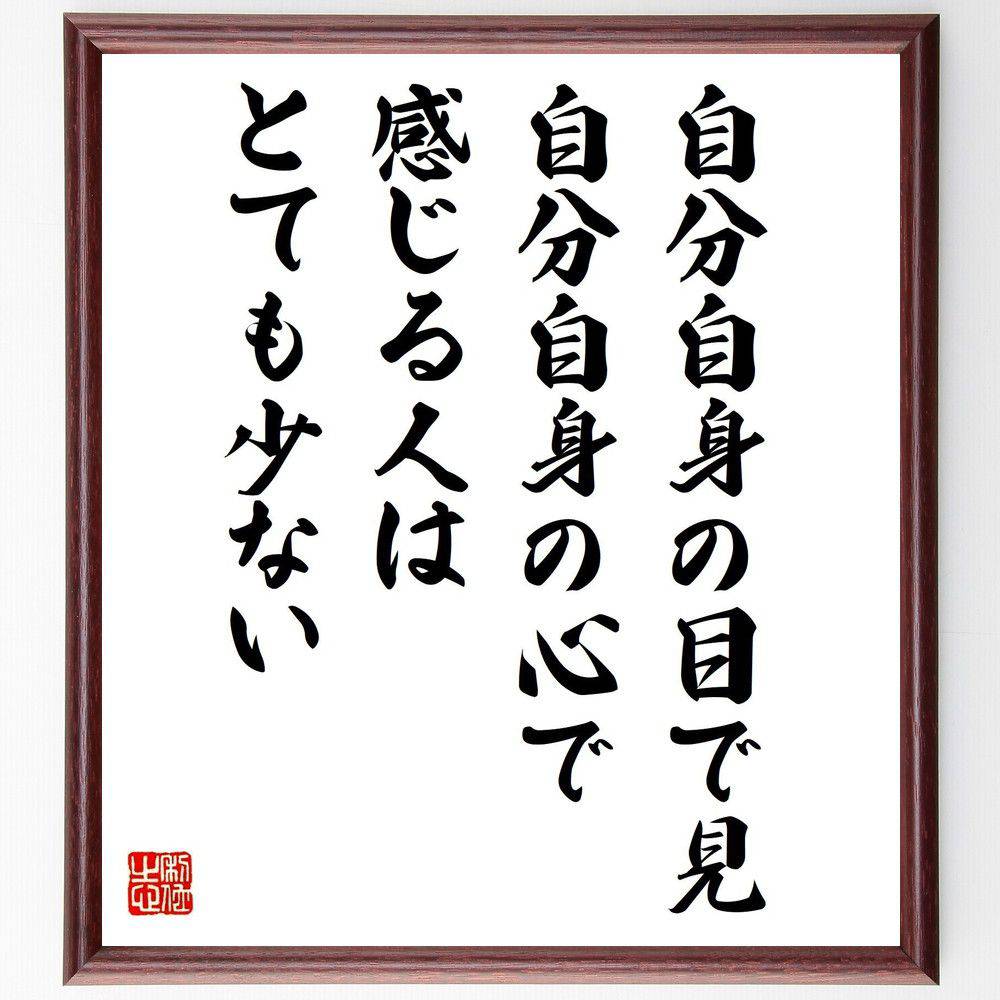 自分自身の目で見
自分自身の心で
感じる人は
とても少ない